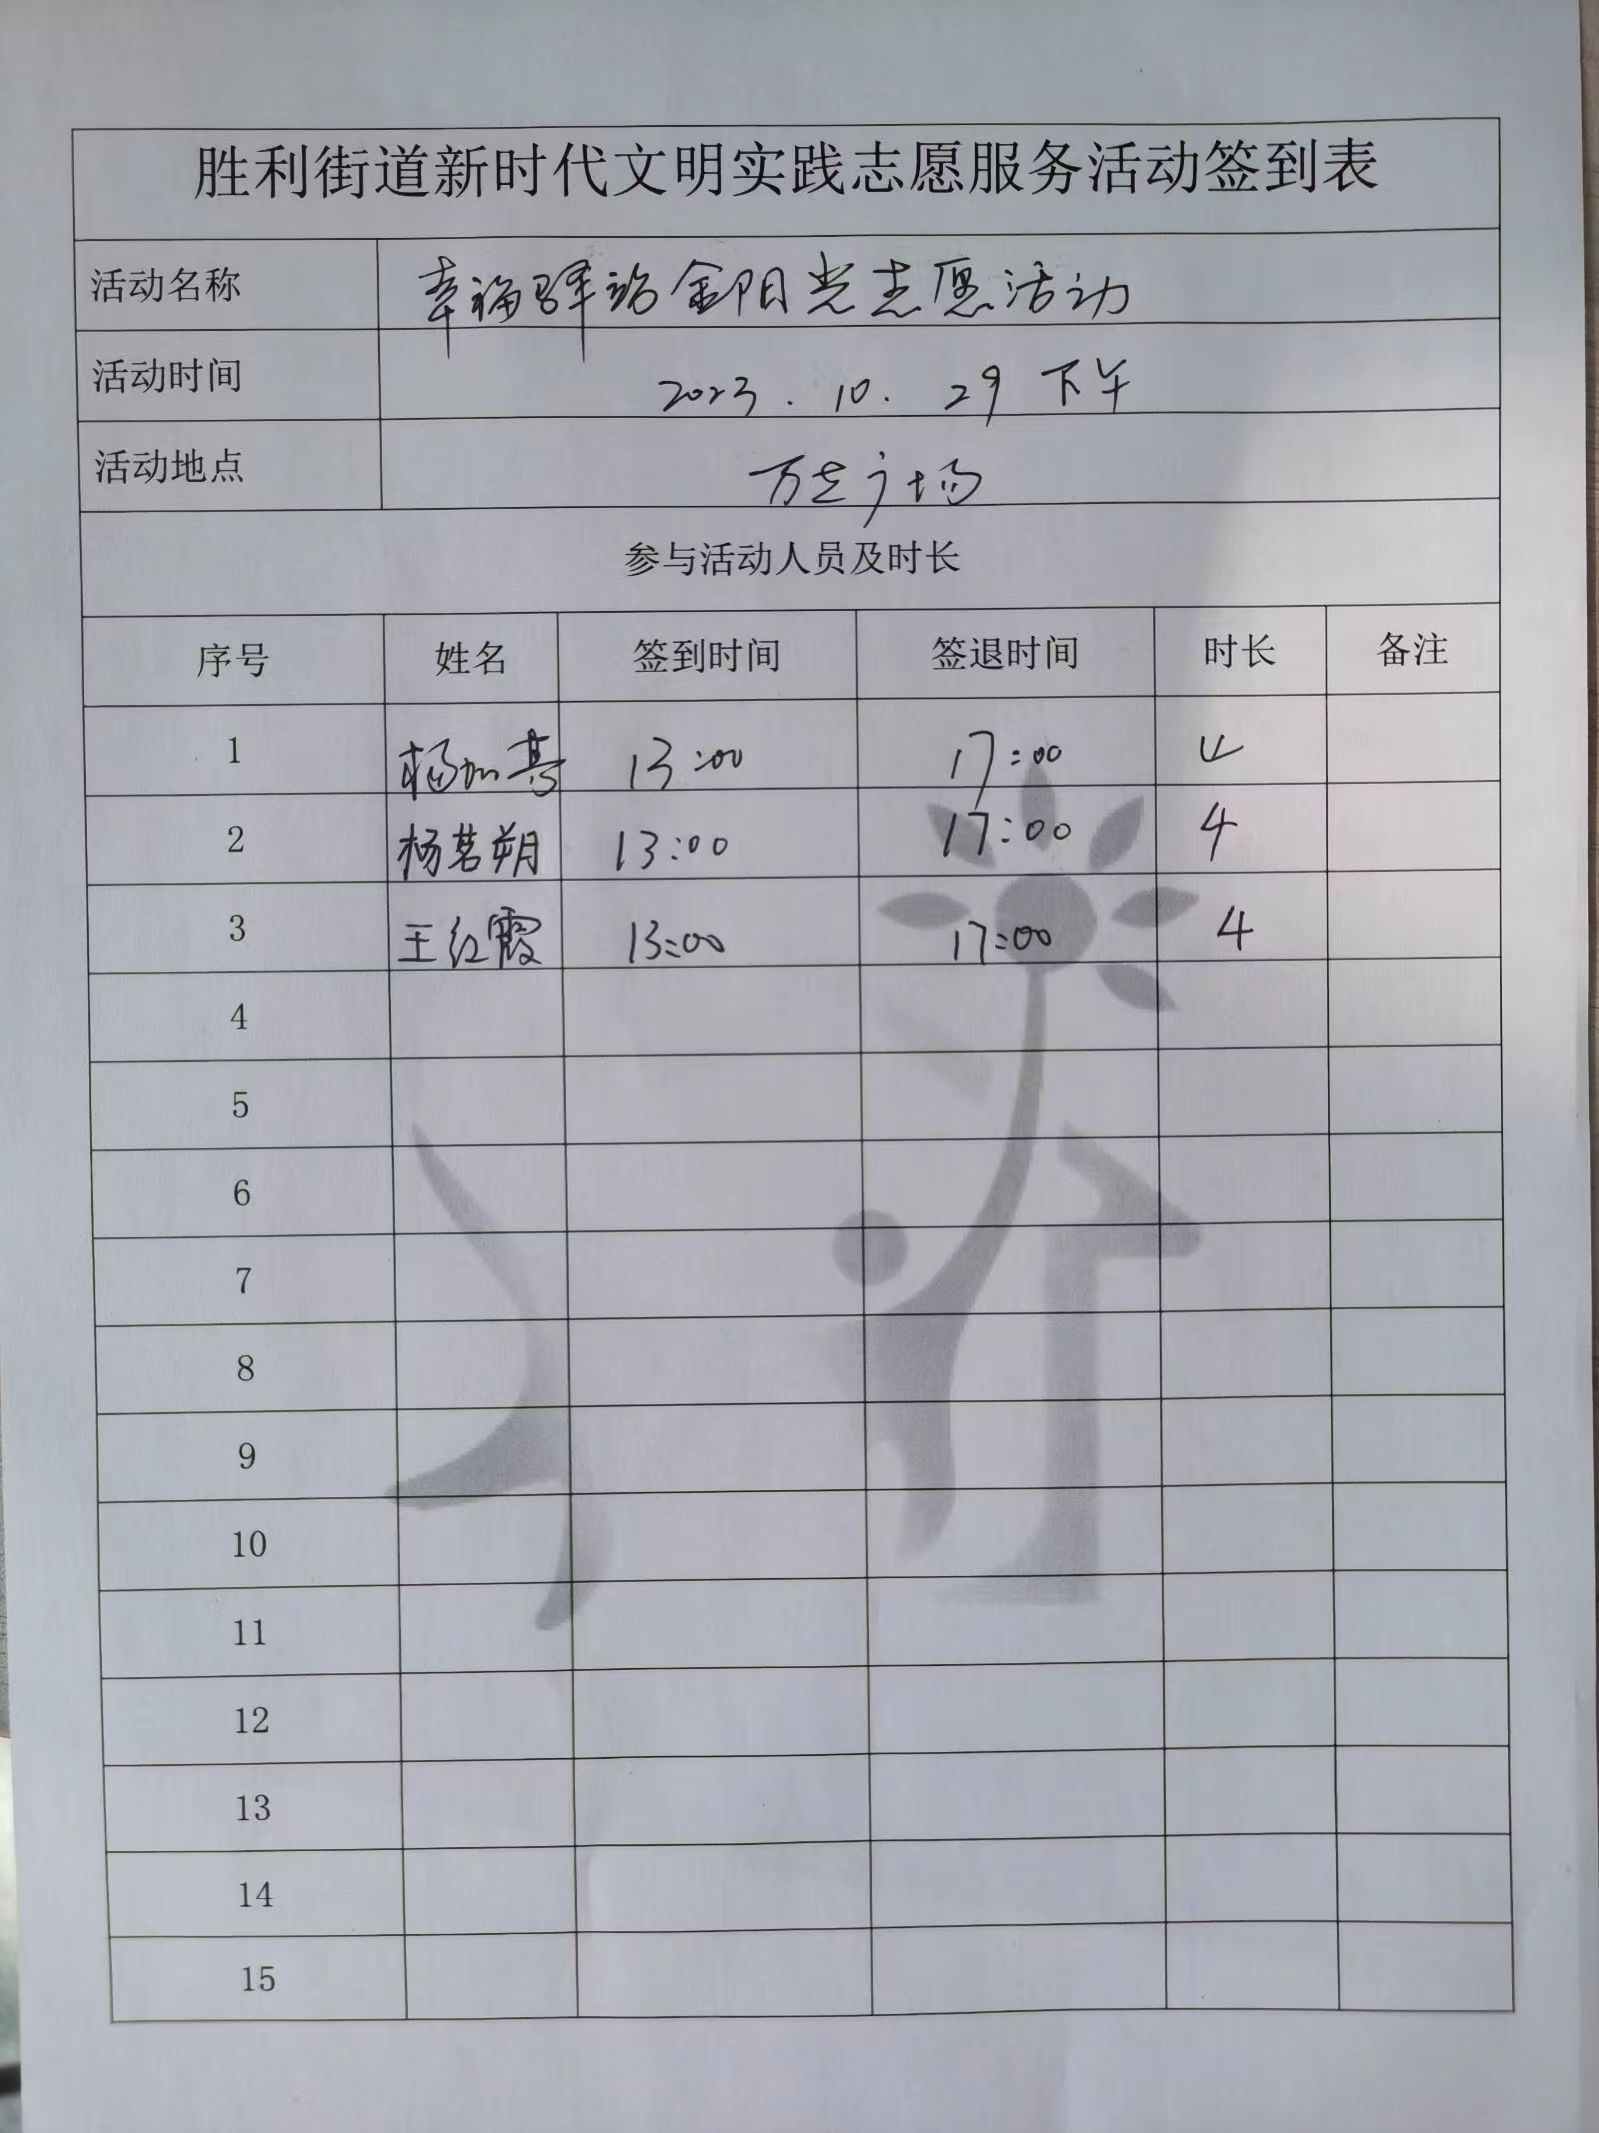 胜利街道新时代文明实践志愿服务活动签到表
活动名称 幸福驿站金阳光志愿活动
活动时间 2023.10.29 下午
活动地点 万达广场
参与活动人员及时长
序号 姓名 签到时间 签退时间 时长 备注
1 杨加 13:00 17:00 4
2 杨茗朔 13:00 17:00 4
3 王红霞 13:00 17:00 4
4
5
6
7
8
9
10
11
12
13
14
15